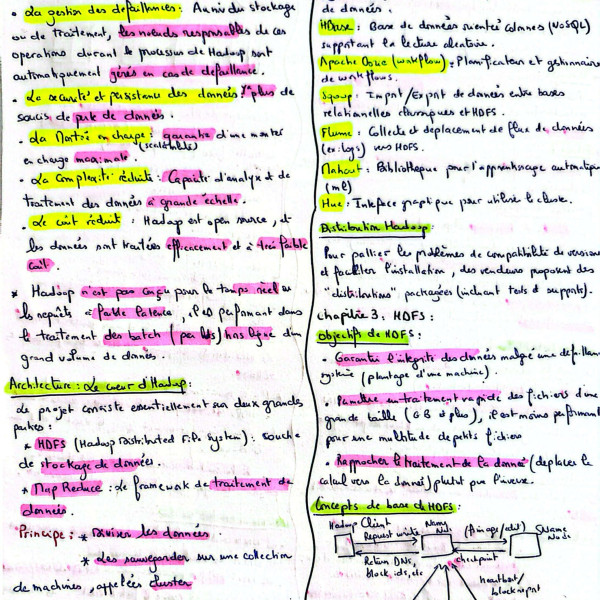 • La gestion des defaillances : Au niveau du stockage
ou de traitement, les nœuds responsables de ces
operations durant le processus de Hadoop sont
automatiquement gérés en cas de defaillance.
• La securité et persistance des données : plus de
soucis de perte de données.
• La Montée en charge : garantie d'une montée
(scalabilité)
en charge maximale.
• La Complexité réduite : Capacité d'analyse et de
traitement des données à grande échelle.
• Le coût réduit : Hadoop est open source, et
les données sont traitées efficacement et à très faible
coût.
* Hadoop n'est pas conçu pour le temps réel ou
les requêtes faible latence, il est performant dans
le traitement des batch (par lots) hors ligne d'un
grand volume de données.
Architecture : Le cœur d'Hadoop :
Le projet consiste essentiellement sur deux grandes
parties :
* HDFS (Hadoop Distributed File System) : couche
de stockage de données.
* Map Reduce : Le framework de traitement de
données.
Principe : * Diviser les données
* les sauvegarder sur une collection
de machines, appelées cluster
de données.
HBase : Base de données orientée colonnes (NoSQL)
supportant la lecture aléatoire.
Apache Oozie (workflow) : Planificateur et gestionnaire
de workflows.
Sqoop : Import/Export de données entre bases
relationnelles classiques et HDFS.
Flume : Collecte et deplacement de flux de données
(ex: logs) vers HDFS.
Mahout : Bibliothèque pour l'apprentissage automatique
(ml)
Hue : Interface graphique pour utiliser le cluster.
Distribution Hadoop :
Pour pallier les problèmes de compatibilité de versions
et faciliter l'installation, des vendeurs proposent des
"distributions" packagées (incluant tests & supports).
chapitre 3 : HDFS :
objectifs de HDFS :
• Garantir l'intégrité des données malgré une defaillance
système (plantage d'une machine).
• Permettre un traitement rapide des fichiers d'une
grande taille (GB et plus), il est moins performant
pour une multitude de petits fichiers
• Rapprocher le traitement de la donnée (deplacer le
calcul vers la donnée) plutôt que l'inverse.
Concepts de base de HDFS :
Hadoop Client
Request write
Name
Node
(fsimage/edit)
SName
Node
Return DNs,
block ids, etc
checkpoint
heartbeat/
block report